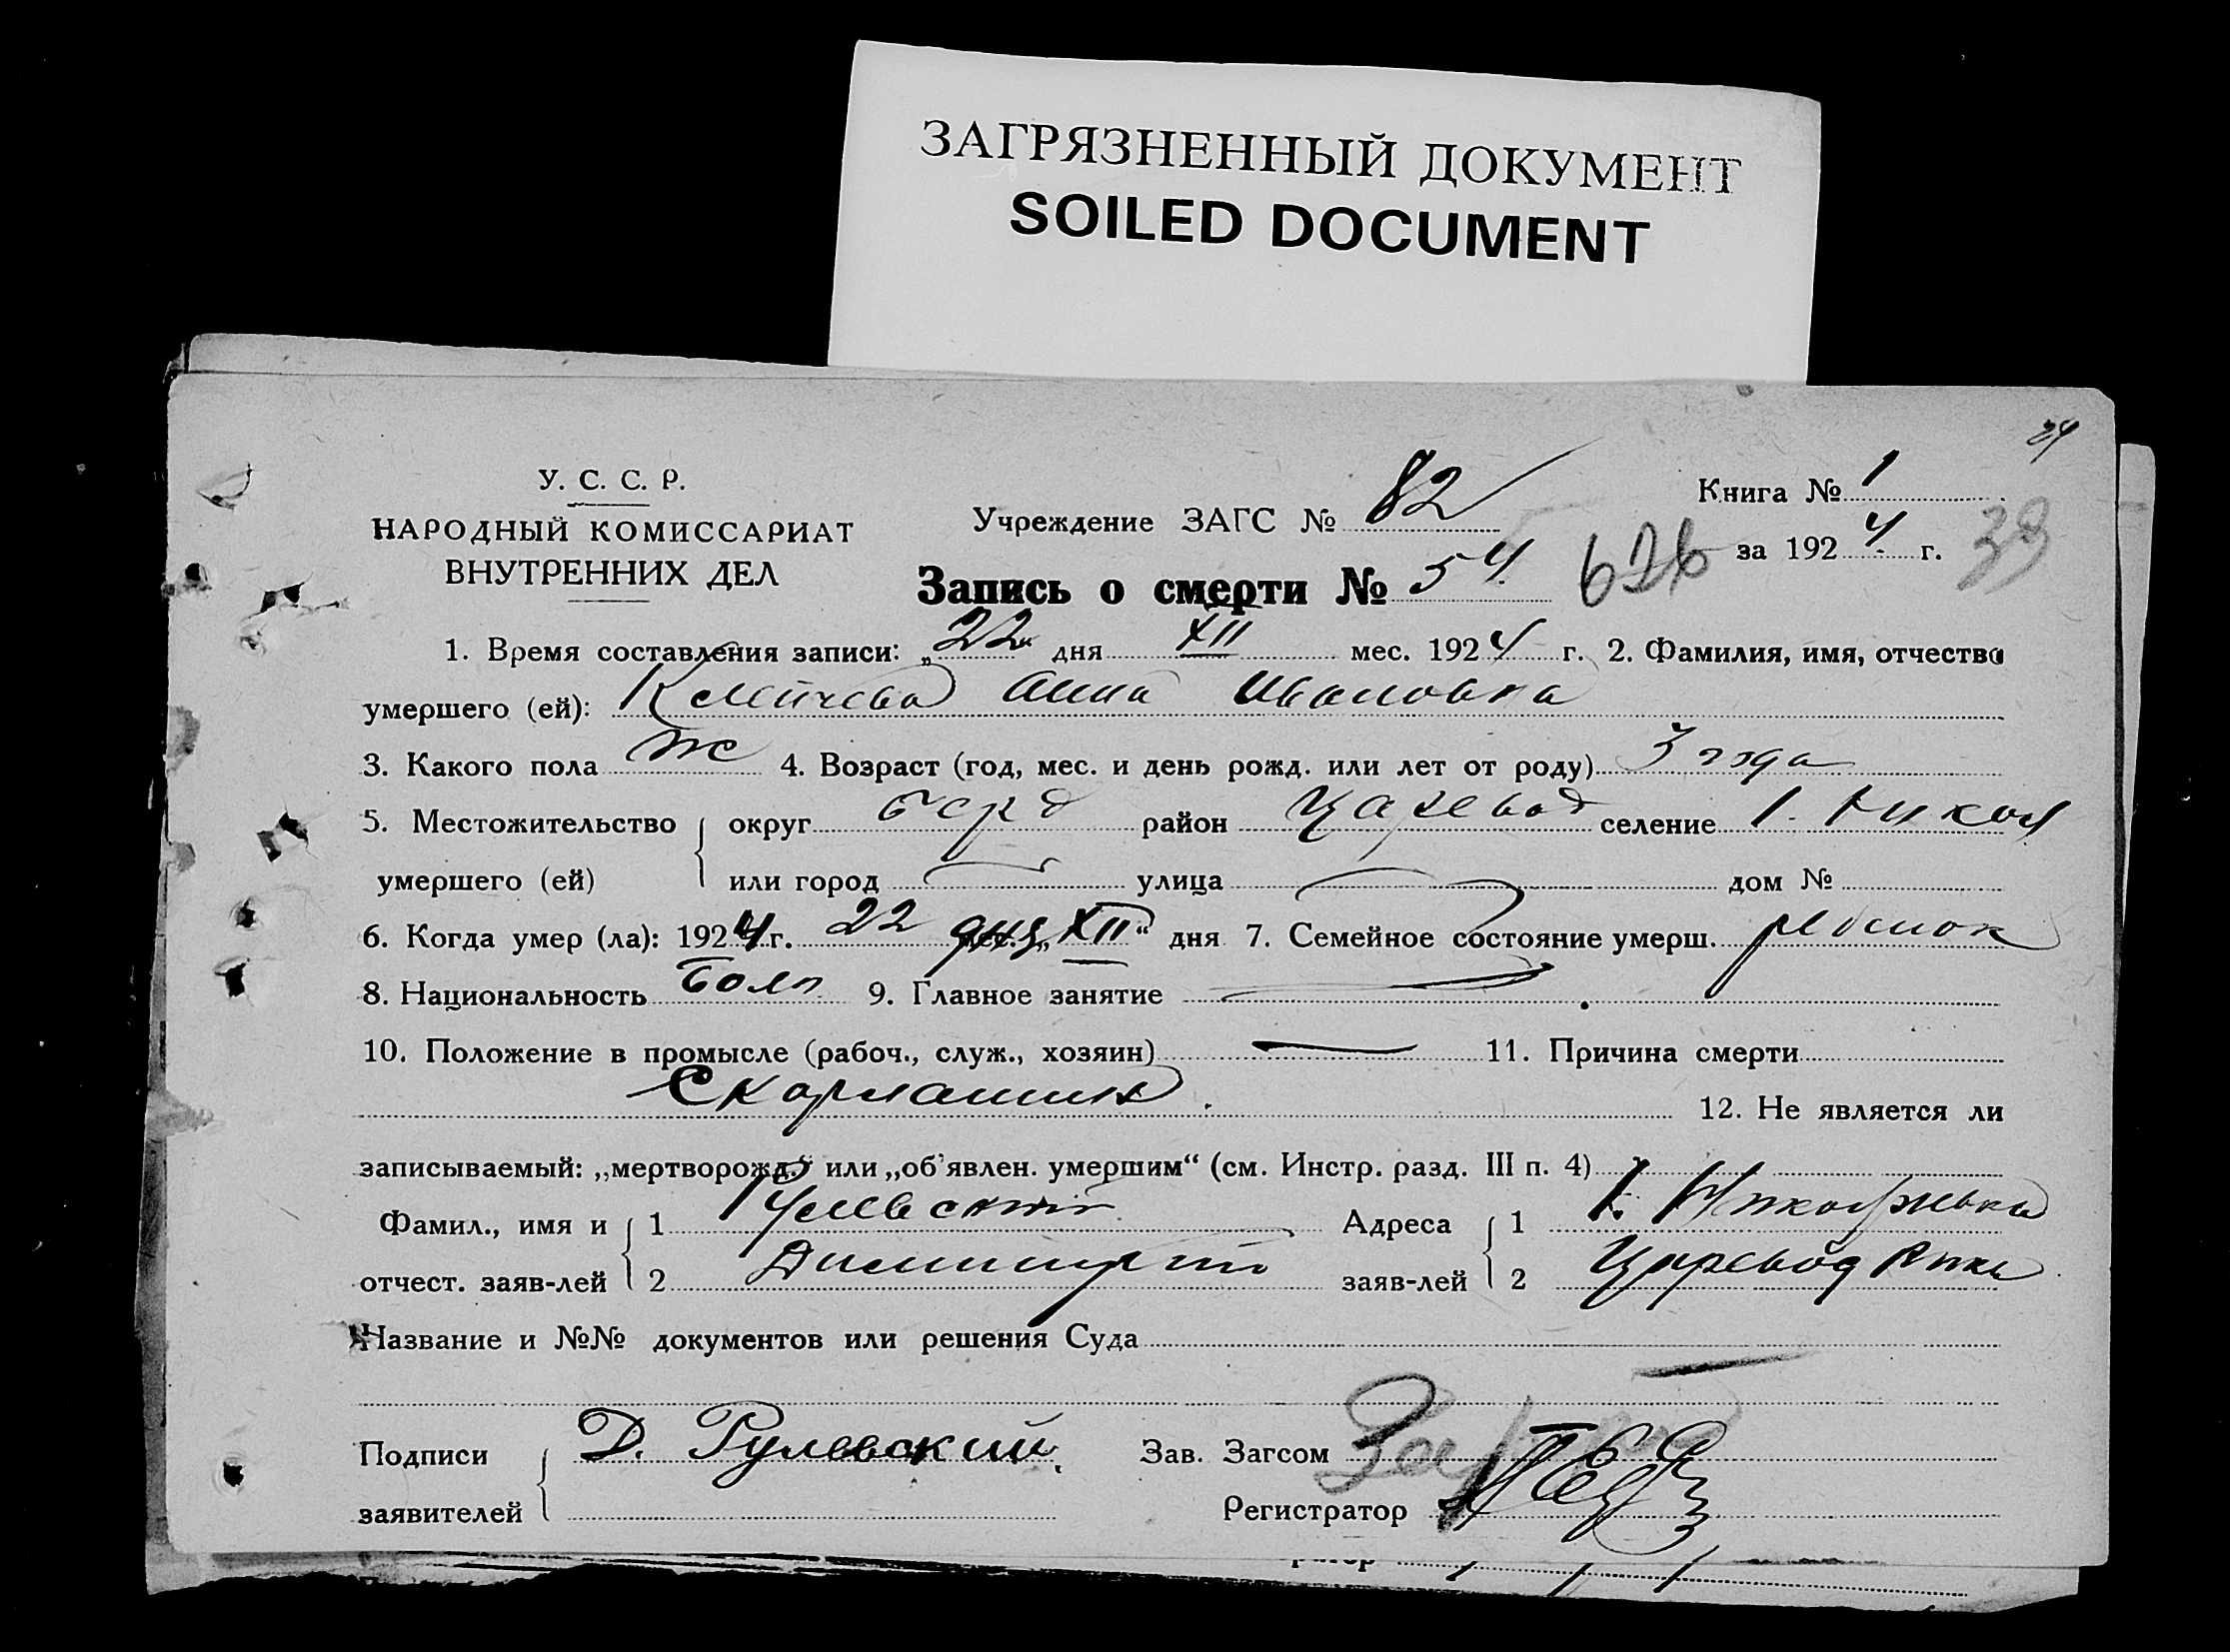 ЗАГРЯЗНЕННЫЙ ДОКУМЕНТ
SOILED DOCUMENT
У. С. С. Р.
НАРОДНЫЙ КОМИССАРИАТ
ВНУТРЕННИХ ДЕЛ
Учреждение ЗАГС № 82
Книга № 1
за 1924 г. 39
Запись о смерти № 54 626
1. Время составления записи: „22“ дня XII мес. 1924 г. 2. Фамилия, имя, отчество
умершего (ей): Анна Ивановна
3. Какого пола ж 4. Возраст (год, мес. и день рожд. или лет от роду) 3 года
5. Местожительство округ Берд район Царевод селение 1. Никол
умершего (ей) или город улица дом №
6. Когда умер (ла): 1924 г. 22 дня „XII“ дня 7. Семейное состояние умерш. ребенок
8. Национальность Болг 9. Главное занятие
10. Положение в промысле (рабоч., служ., хозяин) — 11. Причина смерти
Скарлатина. 12. Не является ли
записываемый: „мертворожд.“ или „об'явлен. умершим“ (см. Инстр. разд. III п. 4)
Фамил., имя и 1 Рулевский Адреса 1 1. Николаевка
отчест. заяв-лей 2 Димитрий заяв-лей 2 Царевод
Название и №№ документов или решения Суда
Подписи Д. Рулевский Зав. Загсом
заявителей Регистратор